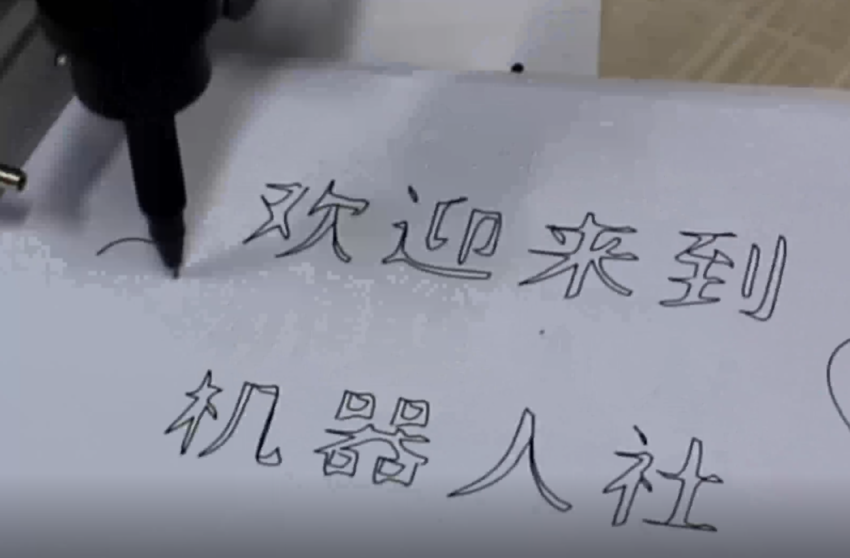 欢迎来到
机器人社